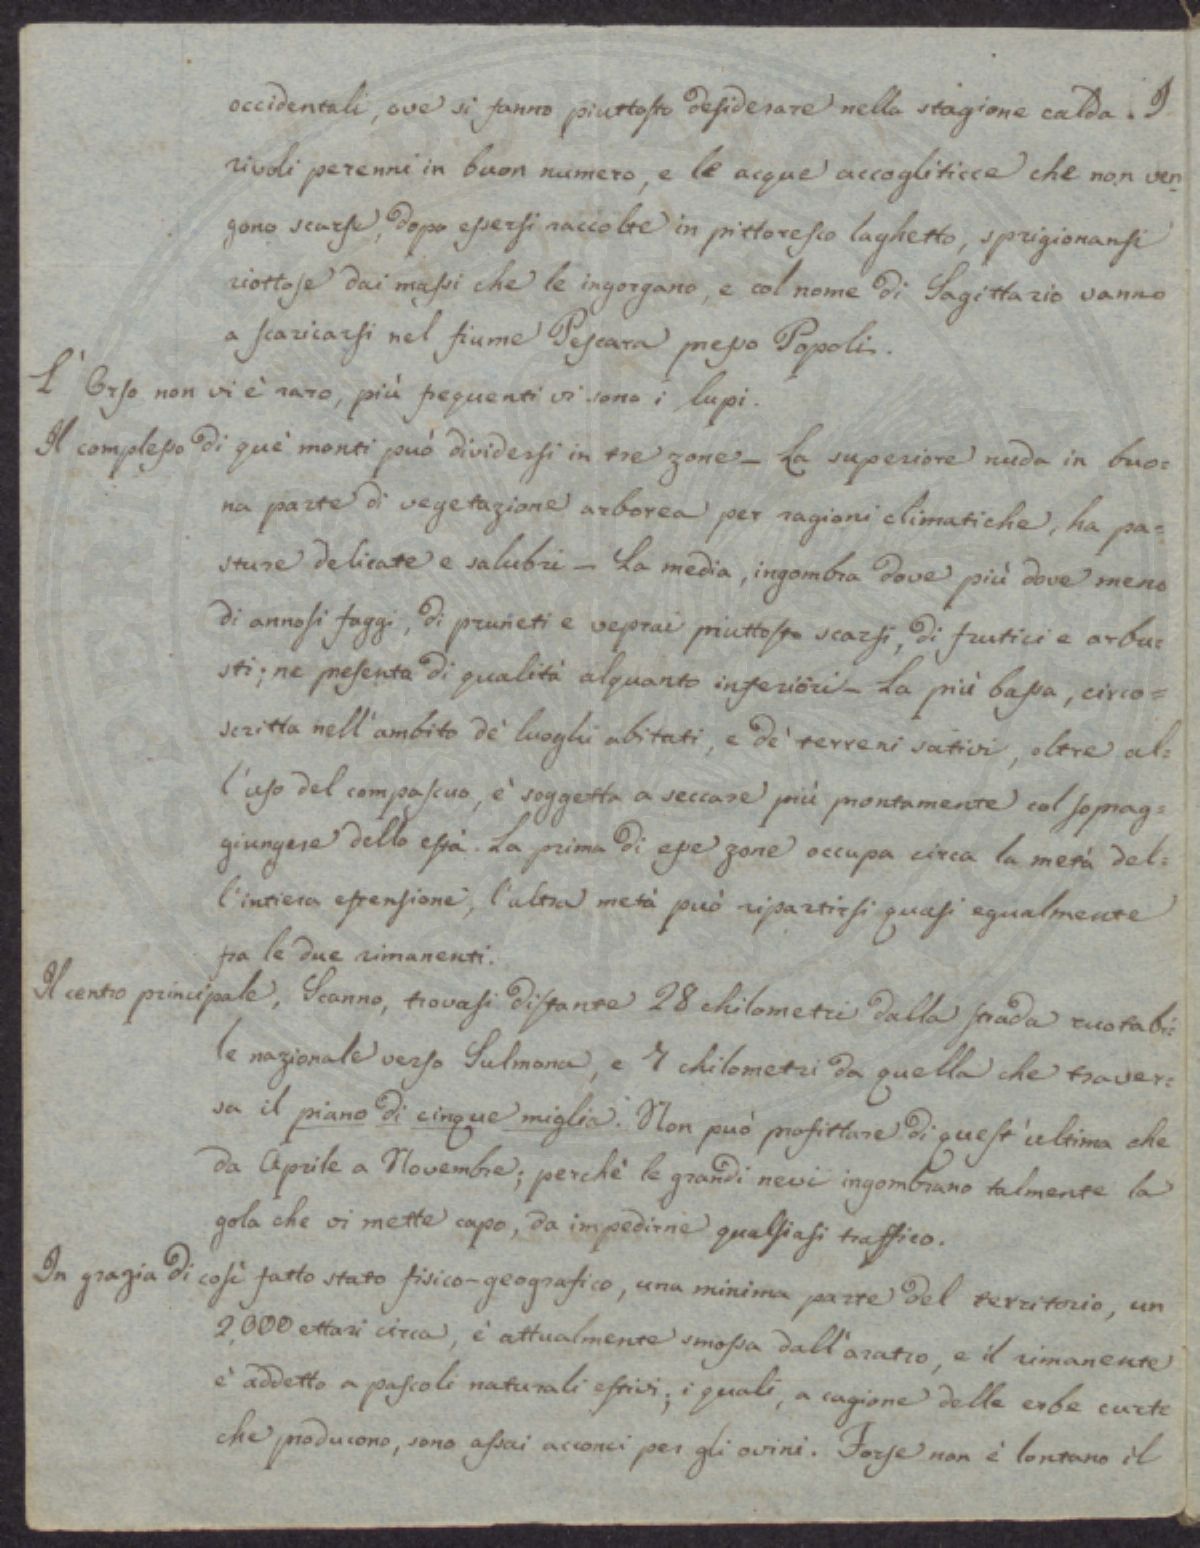 occidentali, ove si fanno piuttosto desiderare nella stagione calda. I
rivoli perenni in buon numero, e le acque accogliticce che non ven-
gono scarse, dopo essersi raccolte in pittoresco laghetto, sprigionansi
riottose dai massi che le ingorgano, e col nome di Sagittario vanno
a scaricarsi nel fiume Pescara presso Popoli.
L'Orso non vi è raro, più frequenti vi sono i lupi.
Il complesso di que' monti può dividersi in tre zone - La superiore nuda in buo=
na parte di vegetazione arborea per ragioni climatiche, ha pa=
sture delicate e salubri - La media, ingombra dove più dove meno
di annosi faggi, di pruneti e veprai piuttosto scarsi, di frutici e arbu=
sti; ne presenta di qualità alquanto inferiori - La più bassa, circo=
scritta nell'ambito de' luoghi abitati, e de' terreni sativi, oltre al=
l'uso del compascuo, è soggetta a seccare più prontamente col soprag=
giungere dello està. La prima di esse zone occupa circa la metà del=
l'intiera estensione, l'altra metà può ripartirsi quasi egualmente
fra le due rimanenti.
Il centro principale, Scanno, trovasi distante 28 chilometri dalla strada ruotabi=
le nazionale verso Sulmona, e 7 chilometri da quella che traver=
sa il piano di cinque miglia. Non può profittare di quest'ultima che
da Aprile a Novembre; perchè le grandi nevi ingombrano talmente la
gola che vi mette capo, da impedirne qualsiasi traffico.
In grazia di così fatto stato fisico-geografico, una minima parte del territorio, un
2,000 ettari circa, è attualmente smossa dall'aratro, e il rimanente
è addetto a pascoli naturali estivi; i quali, a cagione delle erbe curte
che producono, sono assai acconci per gli ovini. Forse non è lontano il